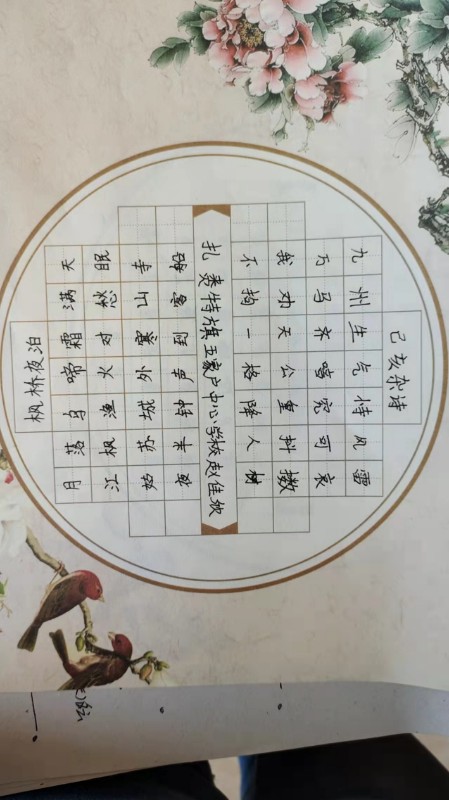 己亥杂诗
九州生气恃风雷
万马齐喑究可哀
我劝天公重抖擞
不拘一格降人材
扎赉特旗五家户中心小学校赵佳欣
枫桥夜泊
月落乌啼霜满天
江枫渔火对愁眠
姑苏城外寒山寺
夜半钟声到客船